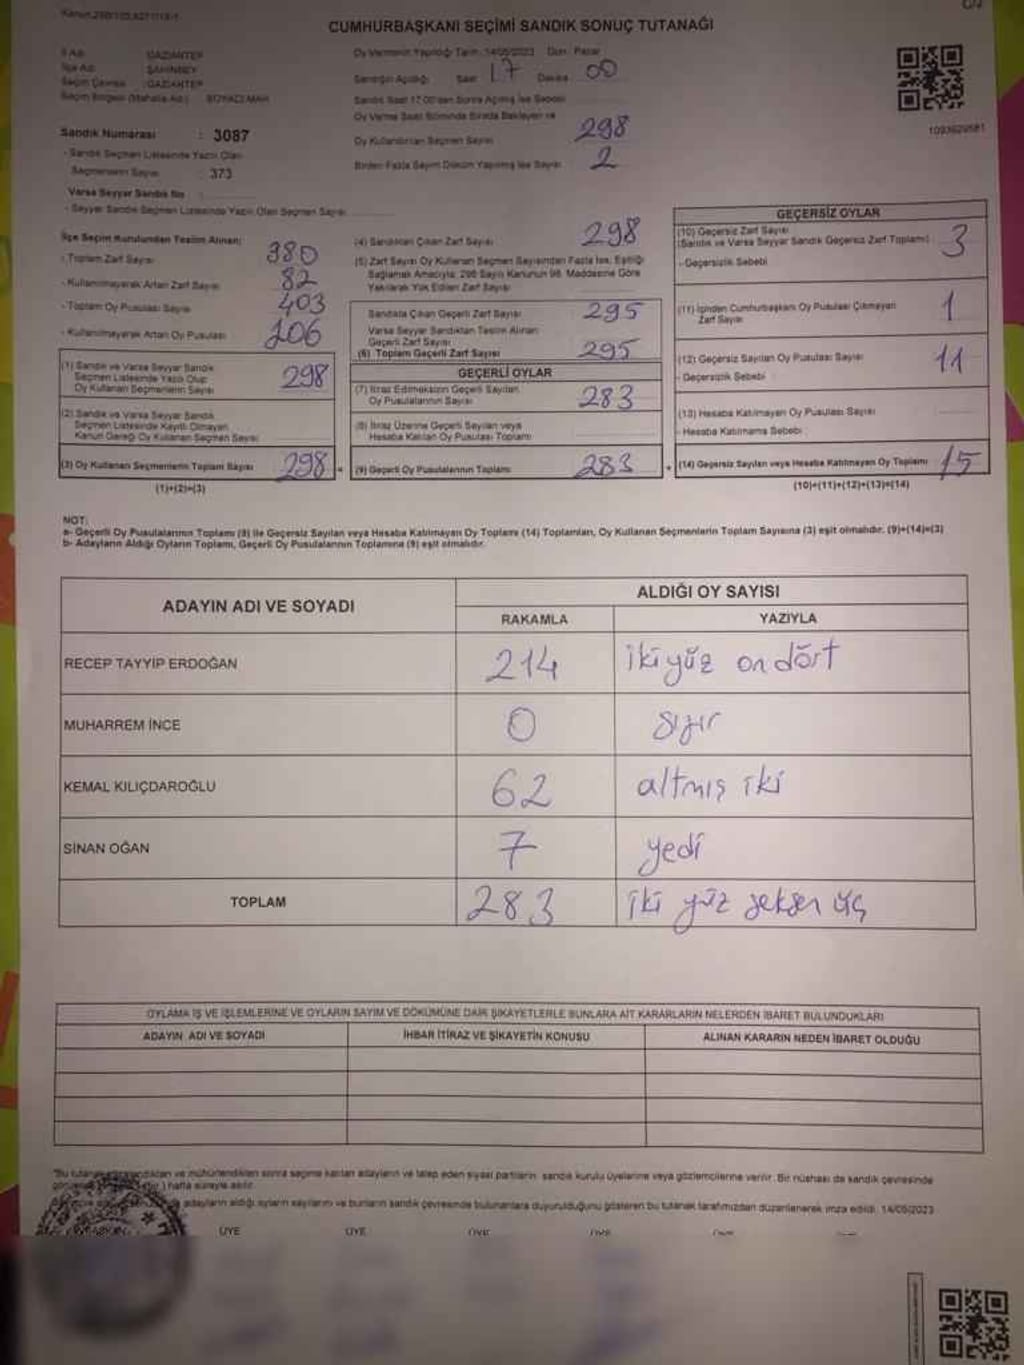 CUMHURBAŞKANI SEÇİMİ SANDIK SONUÇ TUTANAĞI
İl Adı : GAZİANTEP
İlçe Adı : ŞAHİNBEY
Seçim Çevresi : GAZİANTEP
Seçim Bölgesi (Mahalle Adı) : BOYACI MAH
Sandık Numarası : 3087
- Sandık Seçmen Listesinde Yazılı Olan
Seçmenlerin Sayısı : 373
Varsa Seyyar Sandık No :
- Seyyar Sandık Seçmen Listesinde Yazılı Olan Seçmen Sayısı
Oy Vermenin Yapıldığı Tarih: 14/05/2023 Gün: Pazar
Sandığın Açıldığı Saat 17 Dakika 00
Sandık Saat 17.00'den Sonra Açılmış İse Sebebi
Oy Verme Saati Bitiminde Sırada Bekleyen ve
Oy Kullandırılan Seçmen Sayısı 298
Birden Fazla Sayım Döküm Yapılmış İse Sayısı 2
1093629581
İlçe Seçim Kurulundan Teslim Alınan;
- Toplam Zarf Sayısı 380
- Kullanılmayarak Artan Zarf Sayısı 82
- Toplam Oy Pusulası Sayısı 403
- Kullanılmayarak Artan Oy Pusulası 106
(1) Sandık ve Varsa Seyyar Sandık
Seçmen Listesinde Yazılı Olup
Oy Kullanan Seçmenlerin Sayısı 298
(2) Sandık ve Varsa Seyyar Sandık
Seçmen Listesinde Kayıtlı Olmayan
Kanun Gereği Oy Kullanan Seçmen Sayısı
(3) Oy Kullanan Seçmenlerin Toplam Sayısı 298 =
(1)+(2)=(3)
(4) Sandıktan Çıkan Zarf Sayısı 298
(5) Zarf Sayısı Oy Kullanan Seçmen Sayısından Fazla İse, Eşitliği
Sağlamak Amacıyla, 298 Sayılı Kanunun 98. Maddesine Göre
Yakılarak Yok Edilen Zarf Sayısı
Sandıkta Çıkan Geçerli Zarf Sayısı 295
Varsa Seyyar Sandıktan Teslim Alınan
Geçerli Zarf Sayısı
(6) Toplam Geçerli Zarf Sayısı 295
GEÇERLİ OYLAR
(7) İtiraz Edilmeksizin Geçerli Sayılan
Oy Pusulalarının Sayısı 283
(8) İtiraz Üzerine Geçerli Sayılan veya
Hesaba Katılan Oy Pusulası Toplamı
(9) Geçerli Oy Pusulalarının Toplamı 283 +
GEÇERSİZ OYLAR
(10) Geçersiz Zarf Sayısı
(Sandık ve Varsa Seyyar Sandık Geçersiz Zarf Toplamı) 3
- Geçersizlik Sebebi
(11) İçinden Cumhurbaşkanı Oy Pusulası Çıkmayan
Zarf Sayısı 1
(12) Geçersiz Sayılan Oy Pusulası Sayısı 11
- Geçersizlik Sebebi
(13) Hesaba Katılmayan Oy Pusulası Sayısı
- Hesaba Katılmama Sebebi
(14) Geçersiz Sayılan veya Hesaba Katılmayan Oy Toplamı 15
(10)+(11)+(12)+(13)=(14)
NOT:
a- Geçerli Oy Pusulalarının Toplamı (9) ile Geçersiz Sayılan veya Hesaba Katılmayan Oy Toplamı (14) Toplamları, Oy Kullanan Seçmenlerin Toplam Sayısına (3) eşit olmalıdır. (9)+(14)=(3)
b- Adayların Aldığı Oyların Toplamı, Geçerli Oy Pusulalarının Toplamına (9) eşit olmalıdır.
ADAYIN ADI VE SOYADI ALDIĞI OY SAYISI
RAKAMLA YAZIYLA
RECEP TAYYİP ERDOĞAN 214 iki yüz on dört
MUHARREM İNCE 0 sıfır
KEMAL KILIÇDAROĞLU 62 altmış iki
SİNAN OĞAN 7 yedi
TOPLAM 283 iki yüz seksen üç
OYLAMA İŞ VE İŞLEMLERİNE VE OYLARIN SAYIM VE DÖKÜMÜNE DAİR ŞİKAYETLERLE BUNLARA AİT KARARLARIN NELERDEN İBARET BULUNDUKLARI
ADAYIN ADI VE SOYADI İHBAR İTİRAZ VE ŞİKAYETİN KONUSU ALINAN KARARIN NEDEN İBARET OLDUĞU
ve mühürlendikten sonra seçime katılan adayların ve talep eden siyasi partilerin sandık kurulu üyelerine veya gözlemcilerine verilir. Bir nüshası da sandık çevresinde
) hafta süreyle asılır.
adayların aldığı oyların sayılarını ve bunların sandık çevresinde bulunanlara duyurulduğunu gösteren bu tutanak tarafımızdan düzenlenerek imza edildi. 14/05/2023
ÜYE ÜYE ÜYE ÜYE